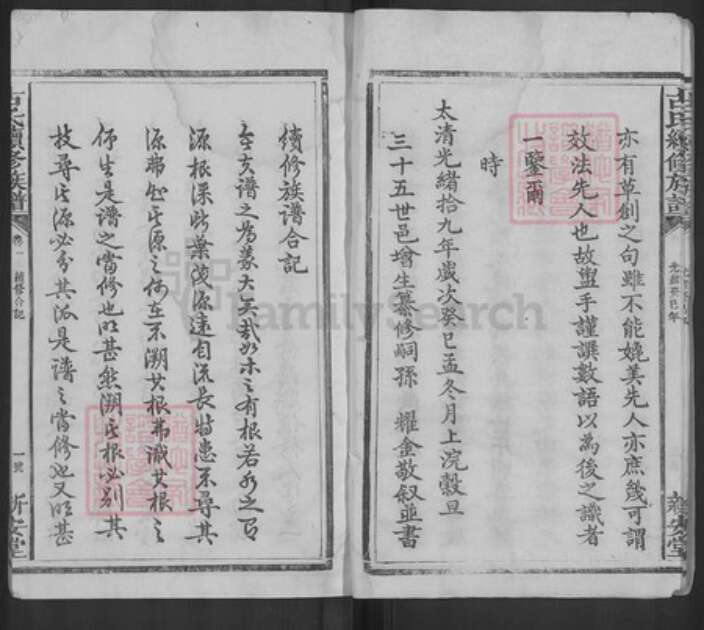 古氏續修族譜
光緒癸巳年
新安堂
亦有草創之句雖不能媲美先人亦庶幾可謂
效法先人也故盥手謹譔數語以為後之識者
一鑒爾
時
太清光緒拾九年歲次癸巳孟冬月上浣穀旦
三十五世邑增生纂修嗣孫 耀金敬叙並書
續修族譜合記
之為義大矣哉如木之有根若水之有
源根深則葉茂源遠自流長特患不尋其
源弗知其源之何在不溯其根弗識其根之
何生是譜之當修也明甚然溯其根必別其
枝尋其源必分其派是譜之當修也又明甚
古氏續修族譜
卷一 續修合記
一號
新安堂
FamilySearch